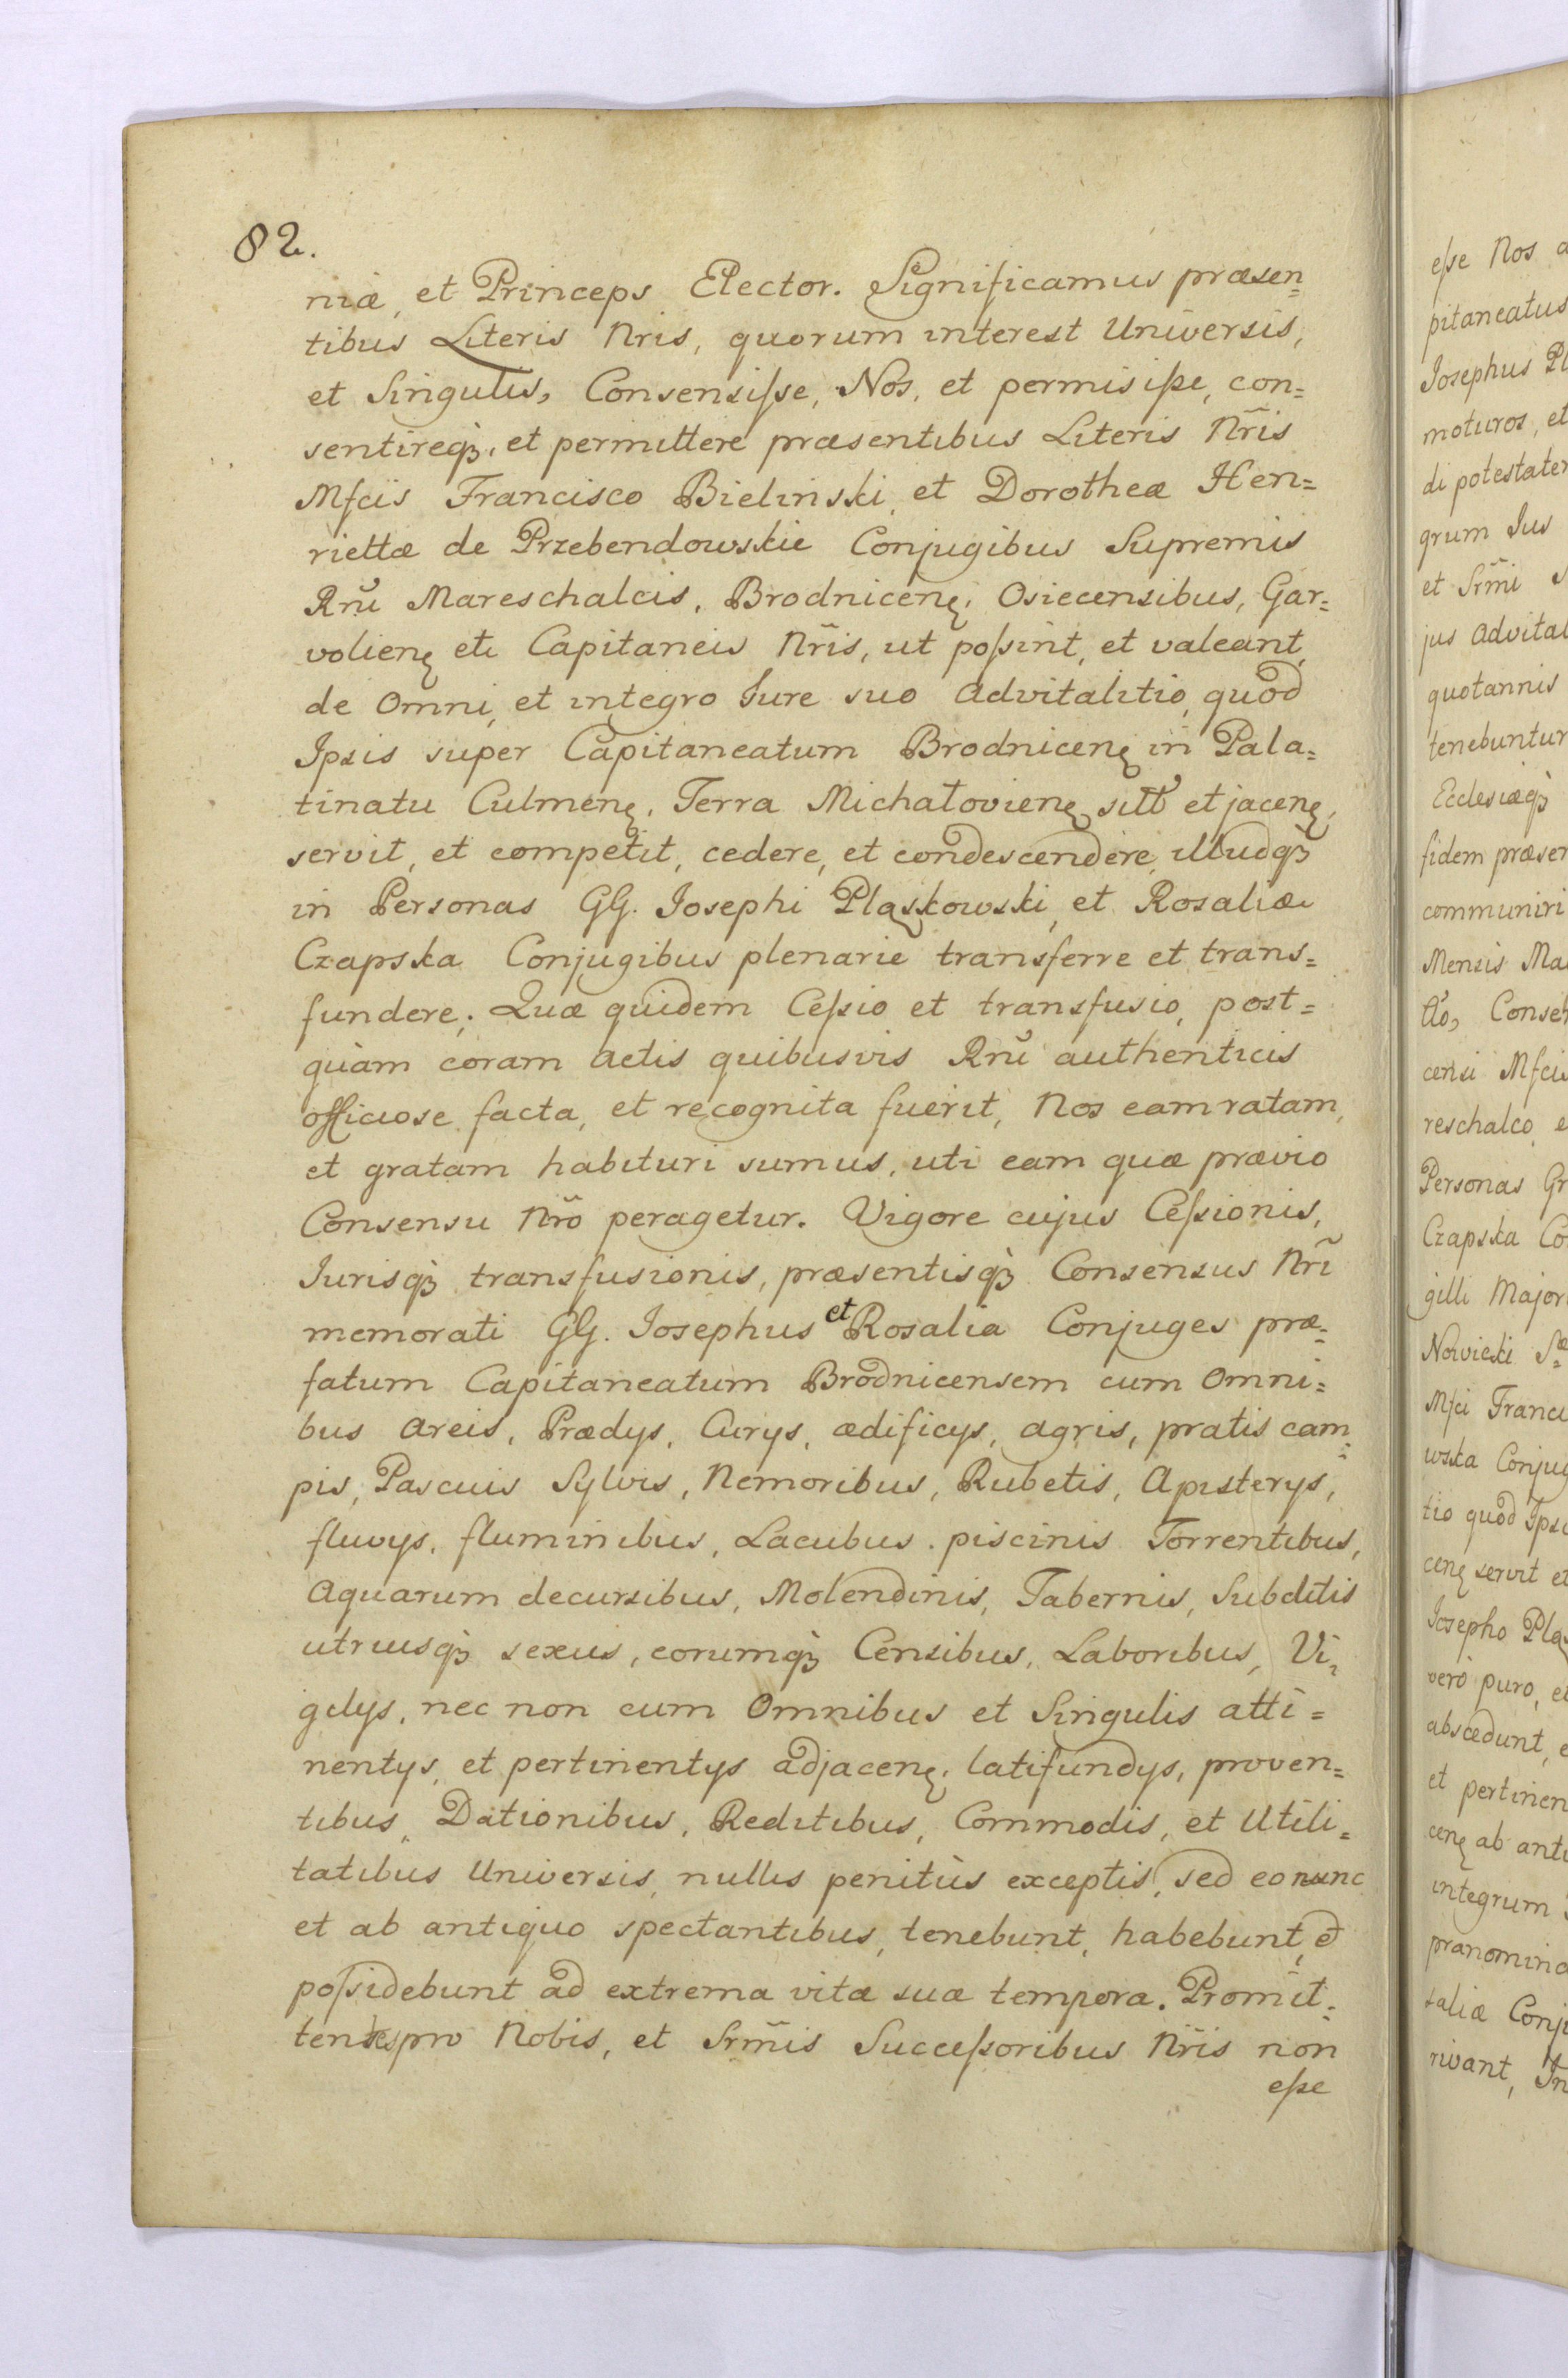 82.
niæ, et Princeps Elector. Significamus præsen=
tibus Literis Nris, quorum interest Universis,
et Singulis, Consensiſse, Nos, et permisiſse, con=
sentireqꝫ, et permittere præsentibus Literis Nr̃is
Mfcis Francisco Bielinski, et Dorotheæ Hen=
riettæ de Przebendowskie Conjugibus Supremis
Rnũ Mareschalcis, Brodnicenę. Osiecensibus, Gar=
volienę etc Capitaneis Nr̃is, ut poſsint, et valeant,
de Omni, et integro Jure suo Advitalitio, quod
Ipsis super Capitaneatum Brodnicenę in Pala=
tinatu Culmenę. Terra Michałovienę sitt̃ et jacenę,
servit, et competit, cedere, et condescendere, illudqꝫ
in Personas GG. Josephi Pląskowski, et Rosaliæ
Czapska Conjugibus plenarie transferre et trans=
fundere; Quæ quidem Ceſsio et transfusio, post=
quàm coram Actis quibusvis Rnũ authenticis
officiose facta, et recognita fuerit, Nos eam ratam,
et gratam habituri sumus, uti eam quæ prævio
Consensu Nr̃o peragetur. Vigore cujus Ceſsionis,
Jurisqꝫ transfusionis, præsentisqꝫ Consensus Nr̃i
memorati GG. Josephus et Rosalia Conjuges præ=
fatum Capitaneatum Brodnicensem cum Omni=
bus Areis, Prædys, Curys, ædificys, agris, pratis cam=
pis, Pascuis Sylvis, Nemoribus, Rubetis, Apisterys,
fluvys, fluminibus, Lacubus. piscinis Torrentibus,
Aquarum decursibus, Molendinis, Tabernis, Subditis
utriusqꝫ sexus, eorumqꝫ Censibus, Laboribus, Vi=
gilys, nec non cum Omnibus et Singulis atti=
nentys, et pertinentys adjacenę. latifundys, proven=
tibus, Dationibus, Reditibus, Commodis, et Utili=
tatibus Universis, nullis penitùs exceptis, sed eo nunc
et ab antiquo spectantibus, tenebunt, habebunt, et
poſsidebunt ad extrema vitæ suæ tempora. Promit=
tentes pro Nobis, et Srm̃is Succeſsoribus Nr̃is non
eſse
eſse Nos
pitaneatus
Josephus
moturos, et
di potestatem
grum Jus
et Srm̃i
jus Advital
quotannis
tenebuntur
Ecclesiæqꝫ
fidem præsen
communiri
Mensis
Consen
censi Mfcis
reschalco,
Personas
Czapska
gilli Major
Nowicki
Mfci Franci
wska Conjug
tio quod Ipsi
cenę servit et
Josepho Plą
verò puro, et
abscedunt,
et pertinen
cenę ab anti
integrum
prænomina
saliæ Conj
rivant,